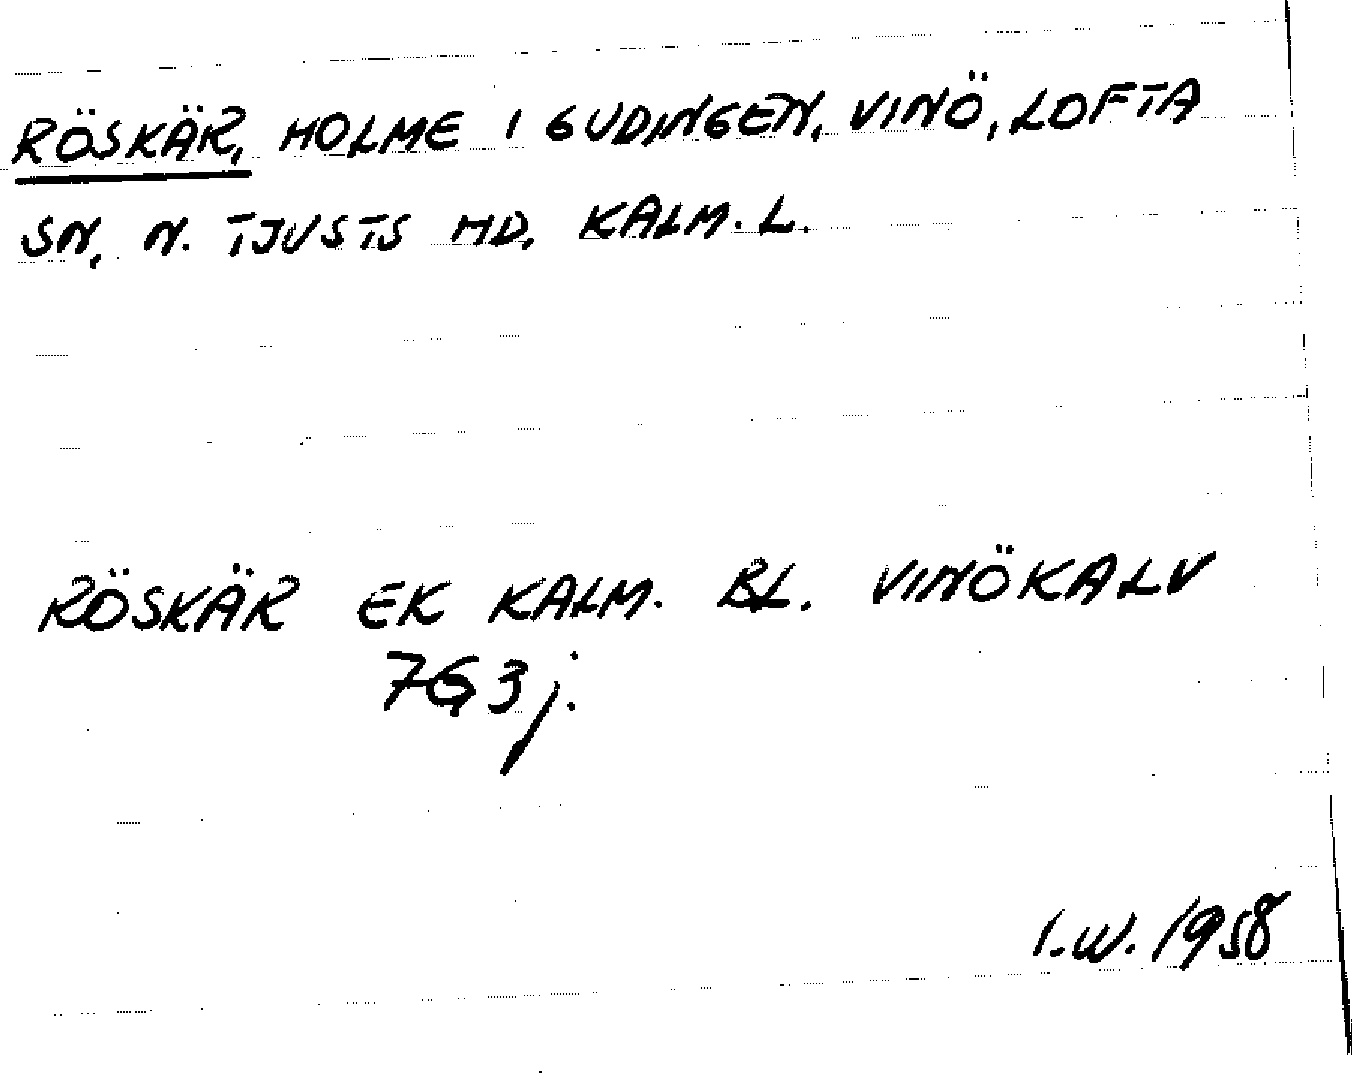 RÖSKÄR, HOLME I GUDINGEN, VINÖ, LOFTA
SN, N. TJUSTS HD, KALM. L.
RÖSKÄR EK KALM. BL. VINÖKALV
7G3j.
I.W. 1958